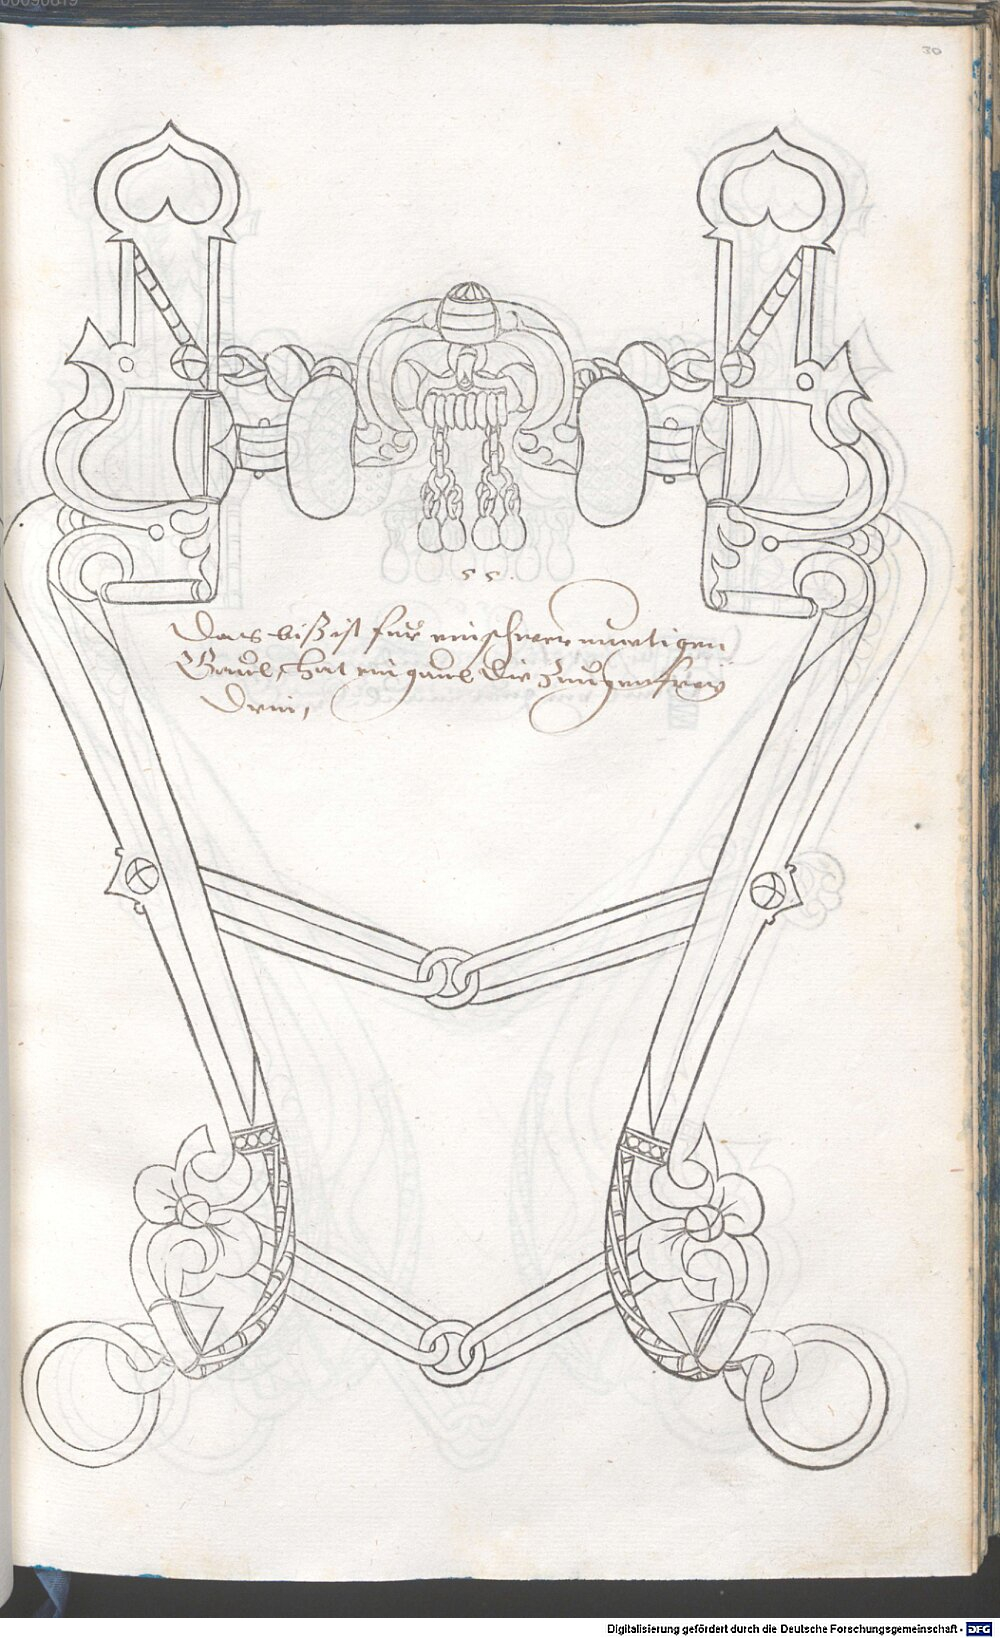 30
55.
Das biß ist für ein schwermuetigen
Gaul, hat ein gaul die Zungen freÿ
drin,
Digitalisierung gefördert durch die Deutsche Forschungsgemeinschaft - DFG